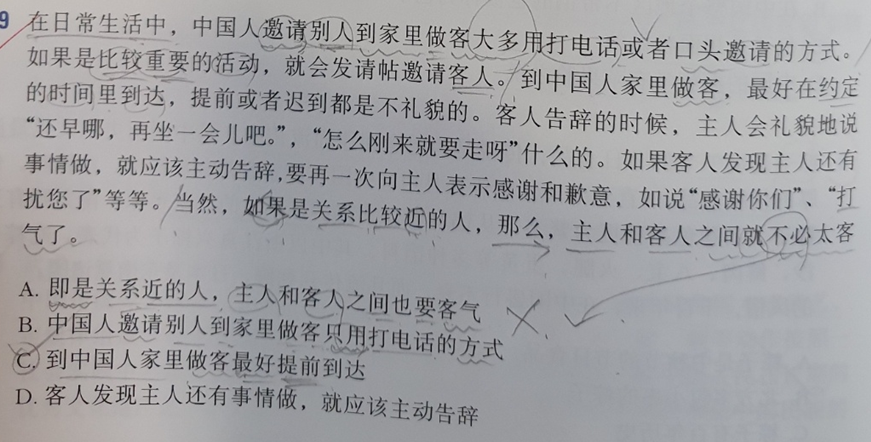 9 在日常生活中，中国人邀请别人到家里做客大多用打电话或者口头邀请的方式。
如果是比较重要的活动，就会发请帖邀请客人。到中国人家里做客，最好在约定
的时间里到达，提前或者迟到都是不礼貌的。客人告辞的时候，主人会礼貌地说
“还早哪，再坐一会儿吧。”，“怎么刚来就要走呀”什么的。如果客人发现主人还有
事情做，就应该主动告辞,要再一次向主人表示感谢和歉意，如说“感谢你们”、“打
扰您了”等等。当然，如果是关系比较近的人，那么，主人和客人之间就不必太客
气了。
A. 即是关系近的人，主人和客人之间也要客气
B. 中国人邀请别人到家里做客只用打电话的方式
C. 到中国人家里做客最好提前到达
D. 客人发现主人还有事情做，就应该主动告辞